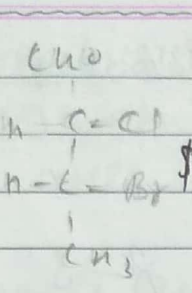 CHO
H - C - Cl
H - C - Br
CH3